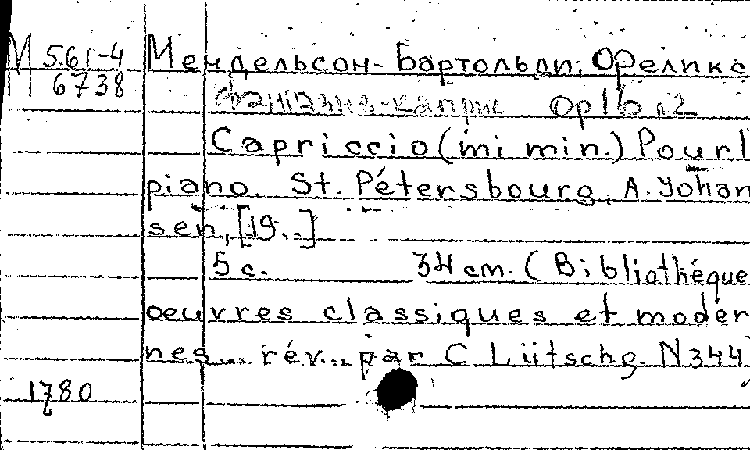 М 5.61-4 Мендельсон-Бартольди, Феликс
М 6738
Фантазия-каприс Op16 №2
Capriccio (mi min.) Pour l
piano. St. Pétersbourg, A. Johan
sen, [19..]
5 с. 34 cm. (Bibliothéque
oeuvres classiques et moder
nes... rév.. par C. Lütschg. N344
1780